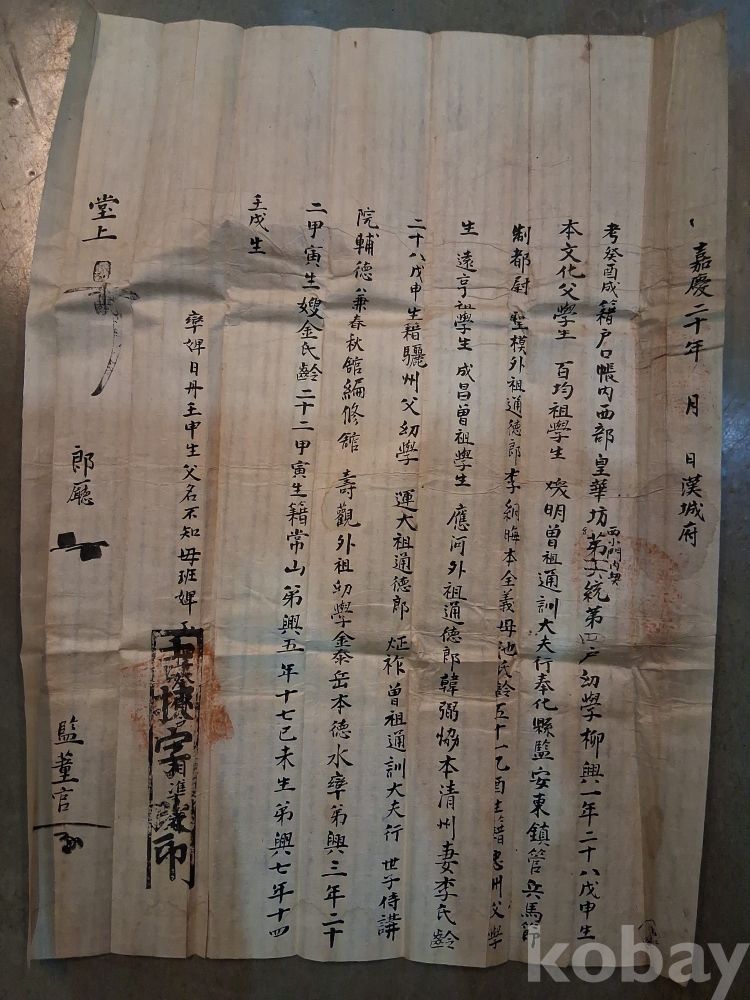 嘉慶二十年 月 日漢城府
考癸酉成籍户口帳內西部皇華坊西小門內契第 統第四户幼學柳興一年二十八戊申生
本文化父學生 百均祖學生 煥明曾祖通訓大夫行奉化縣監安東鎭管兵馬節
制都尉 聖模外祖通德郎李絅晦本全義母池氏齡五十一乙酉生籍忠州父學
生 遠亨祖學生 成昌曾祖學生 應河外祖通德郎韓弼恊本清州妻李氏齡
二十八戊申生籍驪州父幼學 運大祖通德郎 炬祚曾祖通訓大夫行 世子侍講
院輔德兼春秋舘編修舘 壽觀外祖幼學金泰岳本德水率弟興三年二十
二甲寅生嫂金氏齡二十二甲寅生籍常山弟興五年十七己未生弟興七年十四
壬戌生
率婢日丹壬申生父名不知母班婢
堂上
郎廳
監董官
kobay